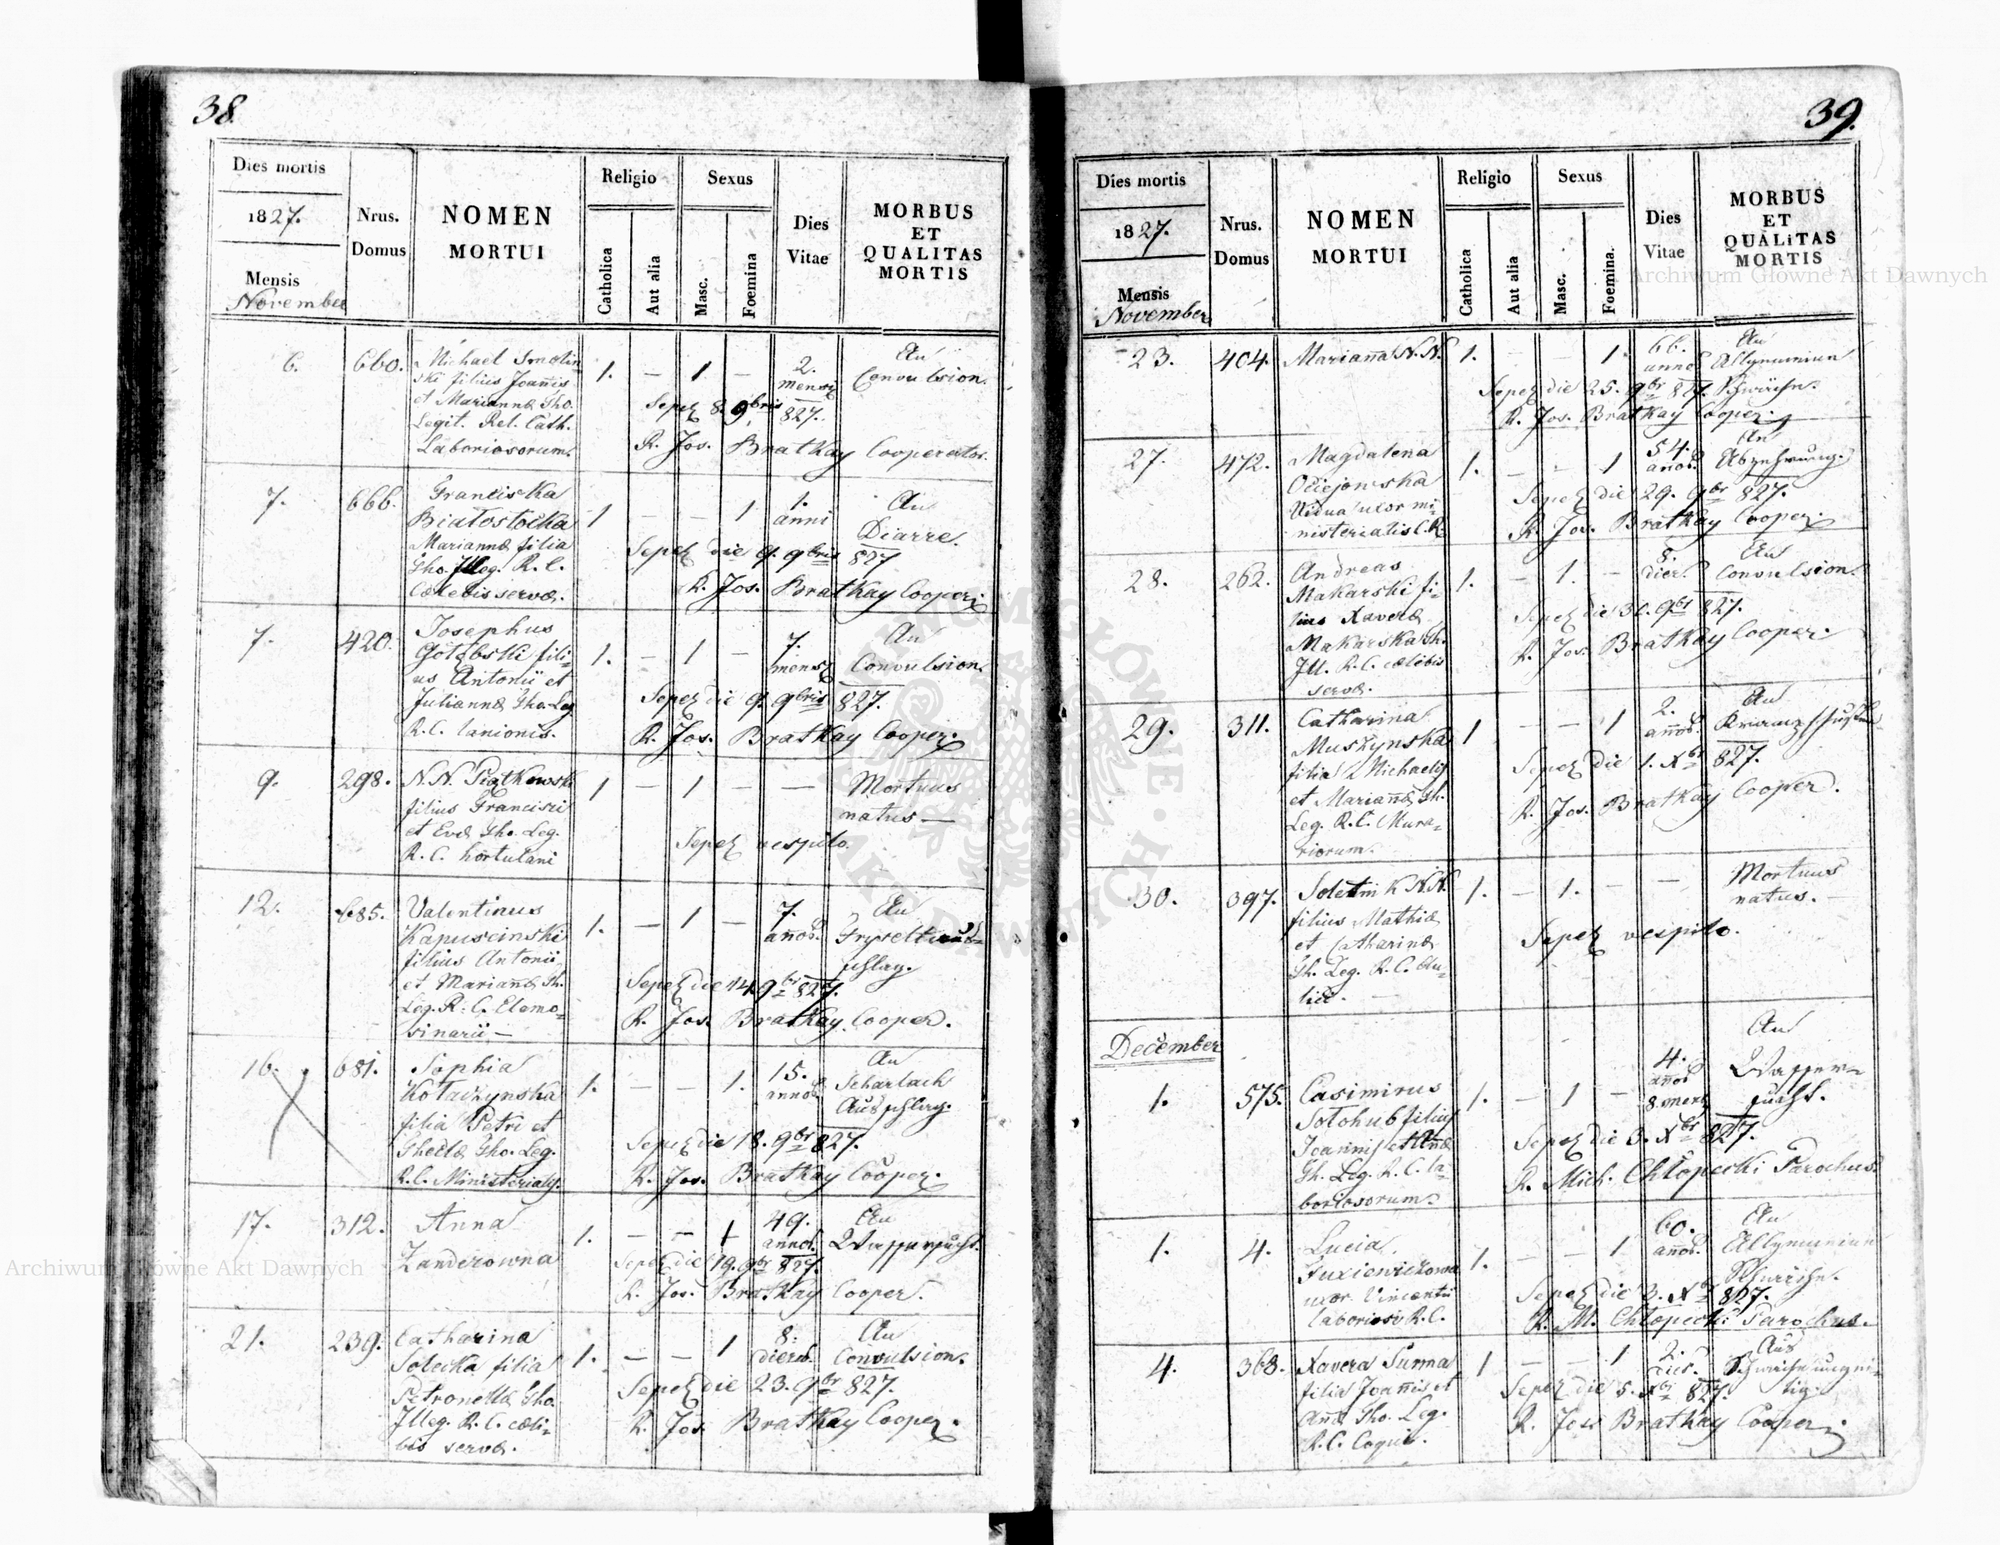 38.
Dies mortis
1827.
Mensis
November
Nrus.
Domus
NOMEN
MORTUI
Religio
Catholica
Aut alia
Sexus
Masc.
Foemina
Dies
Vitae
MORBUS
ET
QUALITAS
MORTIS
6. 660. Michael Smolin
ski filius Joannis
et Mariannæ Tho.
Legit. Rel. Cath.
Laboriosorum.
1. — 1 — 2.
mens
An
Convulsion.
Sepe 8. 9bris 827.
R. Jos. Bratkay Cooperator.
7. 666. Franciska
Białostocka
Mariannæ filia
Tho. Illeg. R. C.
Cœlebis servæ.
1 — — 1 1.
anni
An
Diarre.
Sepe die 9. 9bris 827
R. Jos. Bratkay Cooper.
7. 420. Josephus
Gołębski fili-
us Antonii et
Juliannæ Tho. Leg
R. C. lanionis.
1. — 1 — 7.
mens
An
Convulsion.
Sepe die 9. 9bris 827.
R. Jos. Bratkay Cooper.
9. 298. N. N. Piątkowski
filius Francisci
et Evæ Tho. Leg.
R. C. hortulani
1 — 1 — —
Mortuus
natus —
Sepe vespilo.
12. 685. Valentinus
Kapuscinski
filius Antonii
et Mariannæ Th.
Leg. R. C. Elemo-
sinarii —
1. — 1 — 7.
annor.
An
schlag.
Sepe die 14. 9br 827.
R. Jos. Bratkay Cooper.
16. 681. Sophia
Kołaczynska
filia Petri et
Theclæ Tho. Leg.
R. C. Ministerialis
1. — — 1. 15.
annor
An
Scharlach
Ausschlag.
Sepe die 18. 9br 827.
R. Jos. Bratkay Cooper.
17. 312. Anna
Zanderowna
1. — — 1 49.
annor.
An
Wassersucht.
Sepe die 19. 9br 827.
R. Jos. Bratkay Cooper.
21. 239. Catharina
Solecka filia
Petronellæ Tho.
Illeg. R. C. cæli-
bis servæ.
1. — — 1 8.
dierum.
An
Convulsion.
Sepe die 23. 9br 827.
R. Jos. Bratkay Cooper.
39.
Dies mortis
1827.
Mensis
November
Nrus.
Domus
NOMEN
MORTUI
Religio
Catholica
Aut alia
Sexus
Masc.
Foemina.
Dies
Vitae
MORBUS
ET
QUALITAS
MORTIS
23. 404. Marianna N. N.
1. — — 1. 66.
anno
An
Allgemeinen
Schwäche.
Sepe die 25. 9br 827.
R. Jos. Bratkay Cooper.
27. 472. Magdalena
Ociejowska
Vidua uxor mi-
nisterialis C. R.
1. — — 1 54.
annor.
An
Abzehrung.
Sepe die 29. 9br 827.
R. Jos. Bratkay Cooper.
28. 262. Andreas
Makarski fi-
lius Xaveræ
Makarska Th.
Ill. R. C. cælebis
servæ.
1. — 1. — 8.
dier.
An
Convulsion.
Sepe die 30. 9br 827.
R. Jos. Bratkay Cooper.
29. 311. Catharina
Muszynska
filia Michaelis
et Mariannæ Th.
Leg. R. C. Mura-
riorum.
1 — — 1 2.
annor.
An
Sepe die 1. Xbr 827.
R. Jos. Bratkay Cooper.
30. 397. N. N.
filius Mathiæ
et Catharinæ
Th. Leg. R. C.
1. — 1. — —
Mortuus
natus. —
Sepe vespilo.
December
1. 575. Casimirus
Sołohub filius
Joannis et Annæ
Th. Leg. R. C. la-
boriosorum.
1. — 1 — 4.
annor
8. mens
An
Wasser-
sucht.
Sepe die 3. Xbr 827.
R. Mich. Chłopecki Parochus.
1. 4. Lucia
uxor Vincentii
laboriosi R. C.
1. — — 1 60.
annor.
An
Allgemeinen
Schwäche.
Sepe die 3. Xbr 827.
R. M. Chłopecki Parochus.
4. 368. Xavera Surma
filia Joannis et
Annæ Tho. Leg.
R. C. Coqui.
1 — — 1 2.
dier.
Aus
Sepe die 5. Xbr 827.
R. Jos Bratkay Cooper.
Archiwum Główne Akt Dawnych
Archiwum Główne Akt Dawnych
ARCHIWUM GŁÓWNE • AKT DAWNYCH •